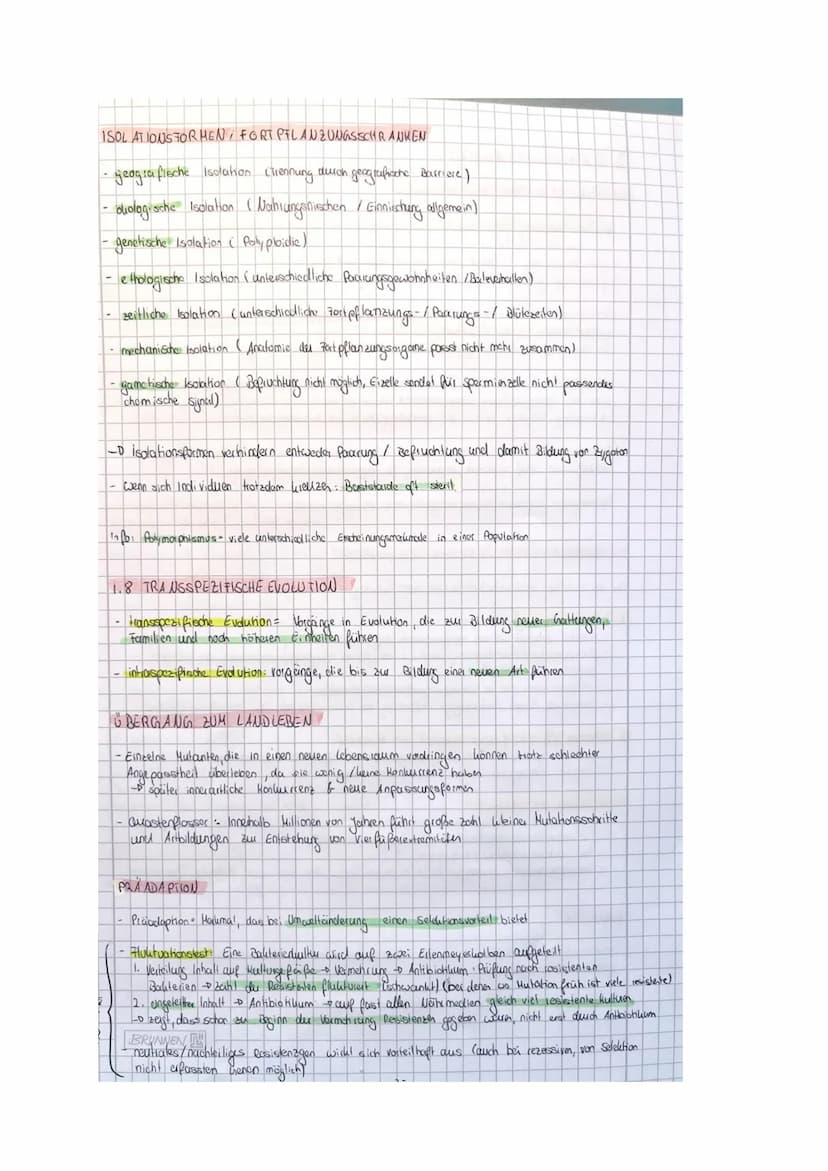 ISOLATIONSFORMEN / FORTPFLANZUNGSSCHRANKEN
- geografische Isolation (Trennung durch geografische Barriere)
- ökologische Isolation (Nahrungsnischen / Einnischung allgemein)
- genetische Isolation (Polyploidie)
- ethologische Isolation (unterschiedliche Paarungsgewohnheiten / Balzverhalten)
- zeitliche Isolation (unterschiedliche Fortpflanzungs- / Paarungs- / Blütezeiten)
- mechanische Isolation (Anatomie der Fortpflanzungsorgane passt nicht mehr zusammen)
- gametische Isolation (Befruchtung nicht möglich, Eizelle sendet für Spermienzelle nicht passendes
chemische Signal)
→ Isolationsformen verhindern entweder Paarung / Befruchtung und damit Bildung von Zygoten
- wenn sich Individuen trotzdem kreuzen: Bastarde oft steril
Info: Polymorphismus = viele unterschiedliche Erscheinungsmerkmale in einer Population
1.8 TRANSSPEZIFISCHE EVOLUTION
- transspezifische Evolution = Vorgänge in Evolution, die zur Bildung neuer Gattungen,
Familien und noch höheren Einheiten führen
- intraspezifische Evolution: Vorgänge, die bis zur Bildung einer neuen Art führen
ÜBERGANG ZUM LANDLEBEN
- Einzelne Mutanten, die in einen neuen Lebensraum vordringen können trotz schlechter
Angepasstheit überleben, da sie wenig / keine Konkurrenz haben
→ später innerartliche Konkurrenz & neue Anpassungsformen
- Quastenflosser: Innerhalb Millionen von Jahren führt große Zahl kleiner Mutationsschritte
und Artbildungen zur Entstehung von Vierfüßerextremitäten
PRÄADAPTION
- Präadaption = Merkmal, das bei Umweltänderung einen Selektionsvorteil bietet
- Fluktuationstest: Eine Bakterienkultur wird auf zwei Erlenmeyerkolben aufgeteilt
1. Verteilung Inhalt auf Kulturgefäße → Vermehrung → Antibiotikum: Prüfung nach resistenten
Bakterien → Zahl der Resistenten fluktuiert (schwankt) (bei denen wo Mutation früh ist viele resistente)
2. ungeteilter Inhalt → Antibiotikum → auf fast allen Nährmedien gleich viel resistente Kulturen
→ zeigt, dass schon zu Beginn der Vermehrung Resistenzen gegeben waren, nicht erst durch Antibiotikum
BRUNNEN
- neutrales / nachteiliges Resistenzgen wirkt sich vorteilhaft aus (auch bei rezessiven, von Selektion
nicht erfassten Genen möglich)